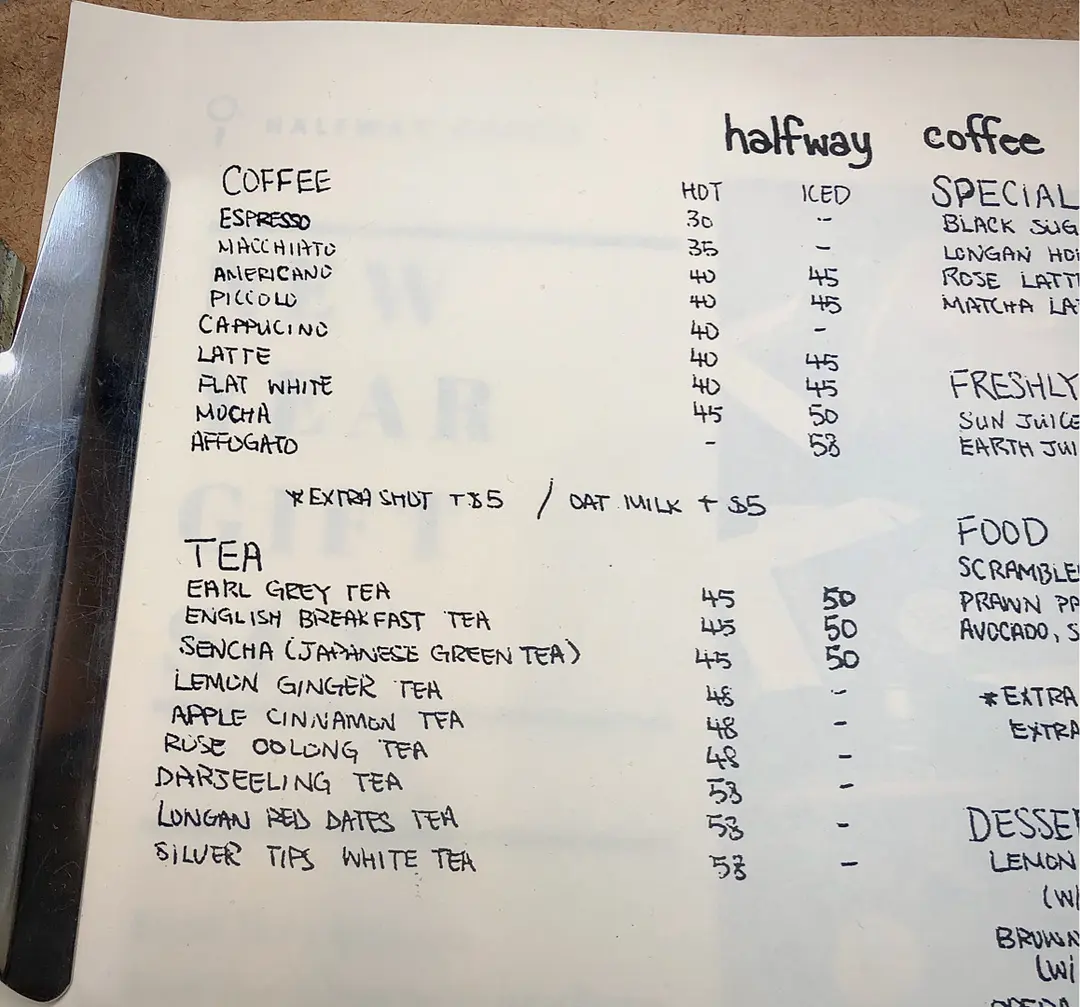 halfway coffee
COFFEE HOT ICED
ESPRESSO 30 -
MACCHIATO 35 -
AMERICANO 40 45
PICCOLO 40 45
CAPPUCINO 40 -
LATTE 40 45
FLAT WHITE 40 45
MOCHA 45 50
AFFOGATO - 58
*EXTRA SHOT +$5 / OAT MILK + $5
TEA
EARL GREY TEA 45 50
ENGLISH BREAKFAST TEA 45 50
SENCHA (JAPANESE GREEN TEA) 45 50
LEMON GINGER TEA 48 -
APPLE CINNAMON TEA 48 -
ROSE OOLONG TEA 48 -
DARJEELING TEA 58 -
LONGAN RED DATES TEA 58 -
SILVER TIPS WHITE TEA 58 -
SPECIAL
BLACK SUG
LONGAN HO
ROSE LATT
MATCHA LA
FRESHLY
SUN JUICE
EARTH JUI
FOOD
SCRAMBLE
PRAWN PA
AVOCADO, S
*EXTRA
EXTRA
DESSE
LEMON
(W
BROWN
(Wi